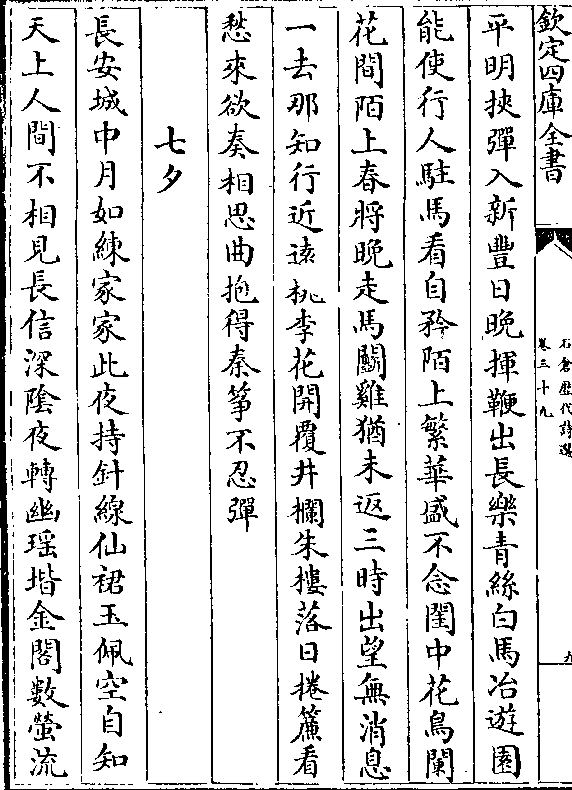 欽定四庫全書
石倉歷代詩選
卷三十九
九
平明挾彈入新豐日晚揮鞭出長樂青絲白馬冶遊園
能使行人駐馬看自矜陌上繁華盛不念閨中花鳥闌
花間陌上春將晚走馬鬭雞猶未返三時出望無消息
一去那知行近遠桃李花開覆井欄朱樓落日捲簾看
愁來欲奏相思曲抱得秦箏不忍彈
七夕
長安城中月如練家家此夜持針線仙裙玉佩空自知
天上人間不相見長信深陰夜轉幽瑤堦金閣數螢流